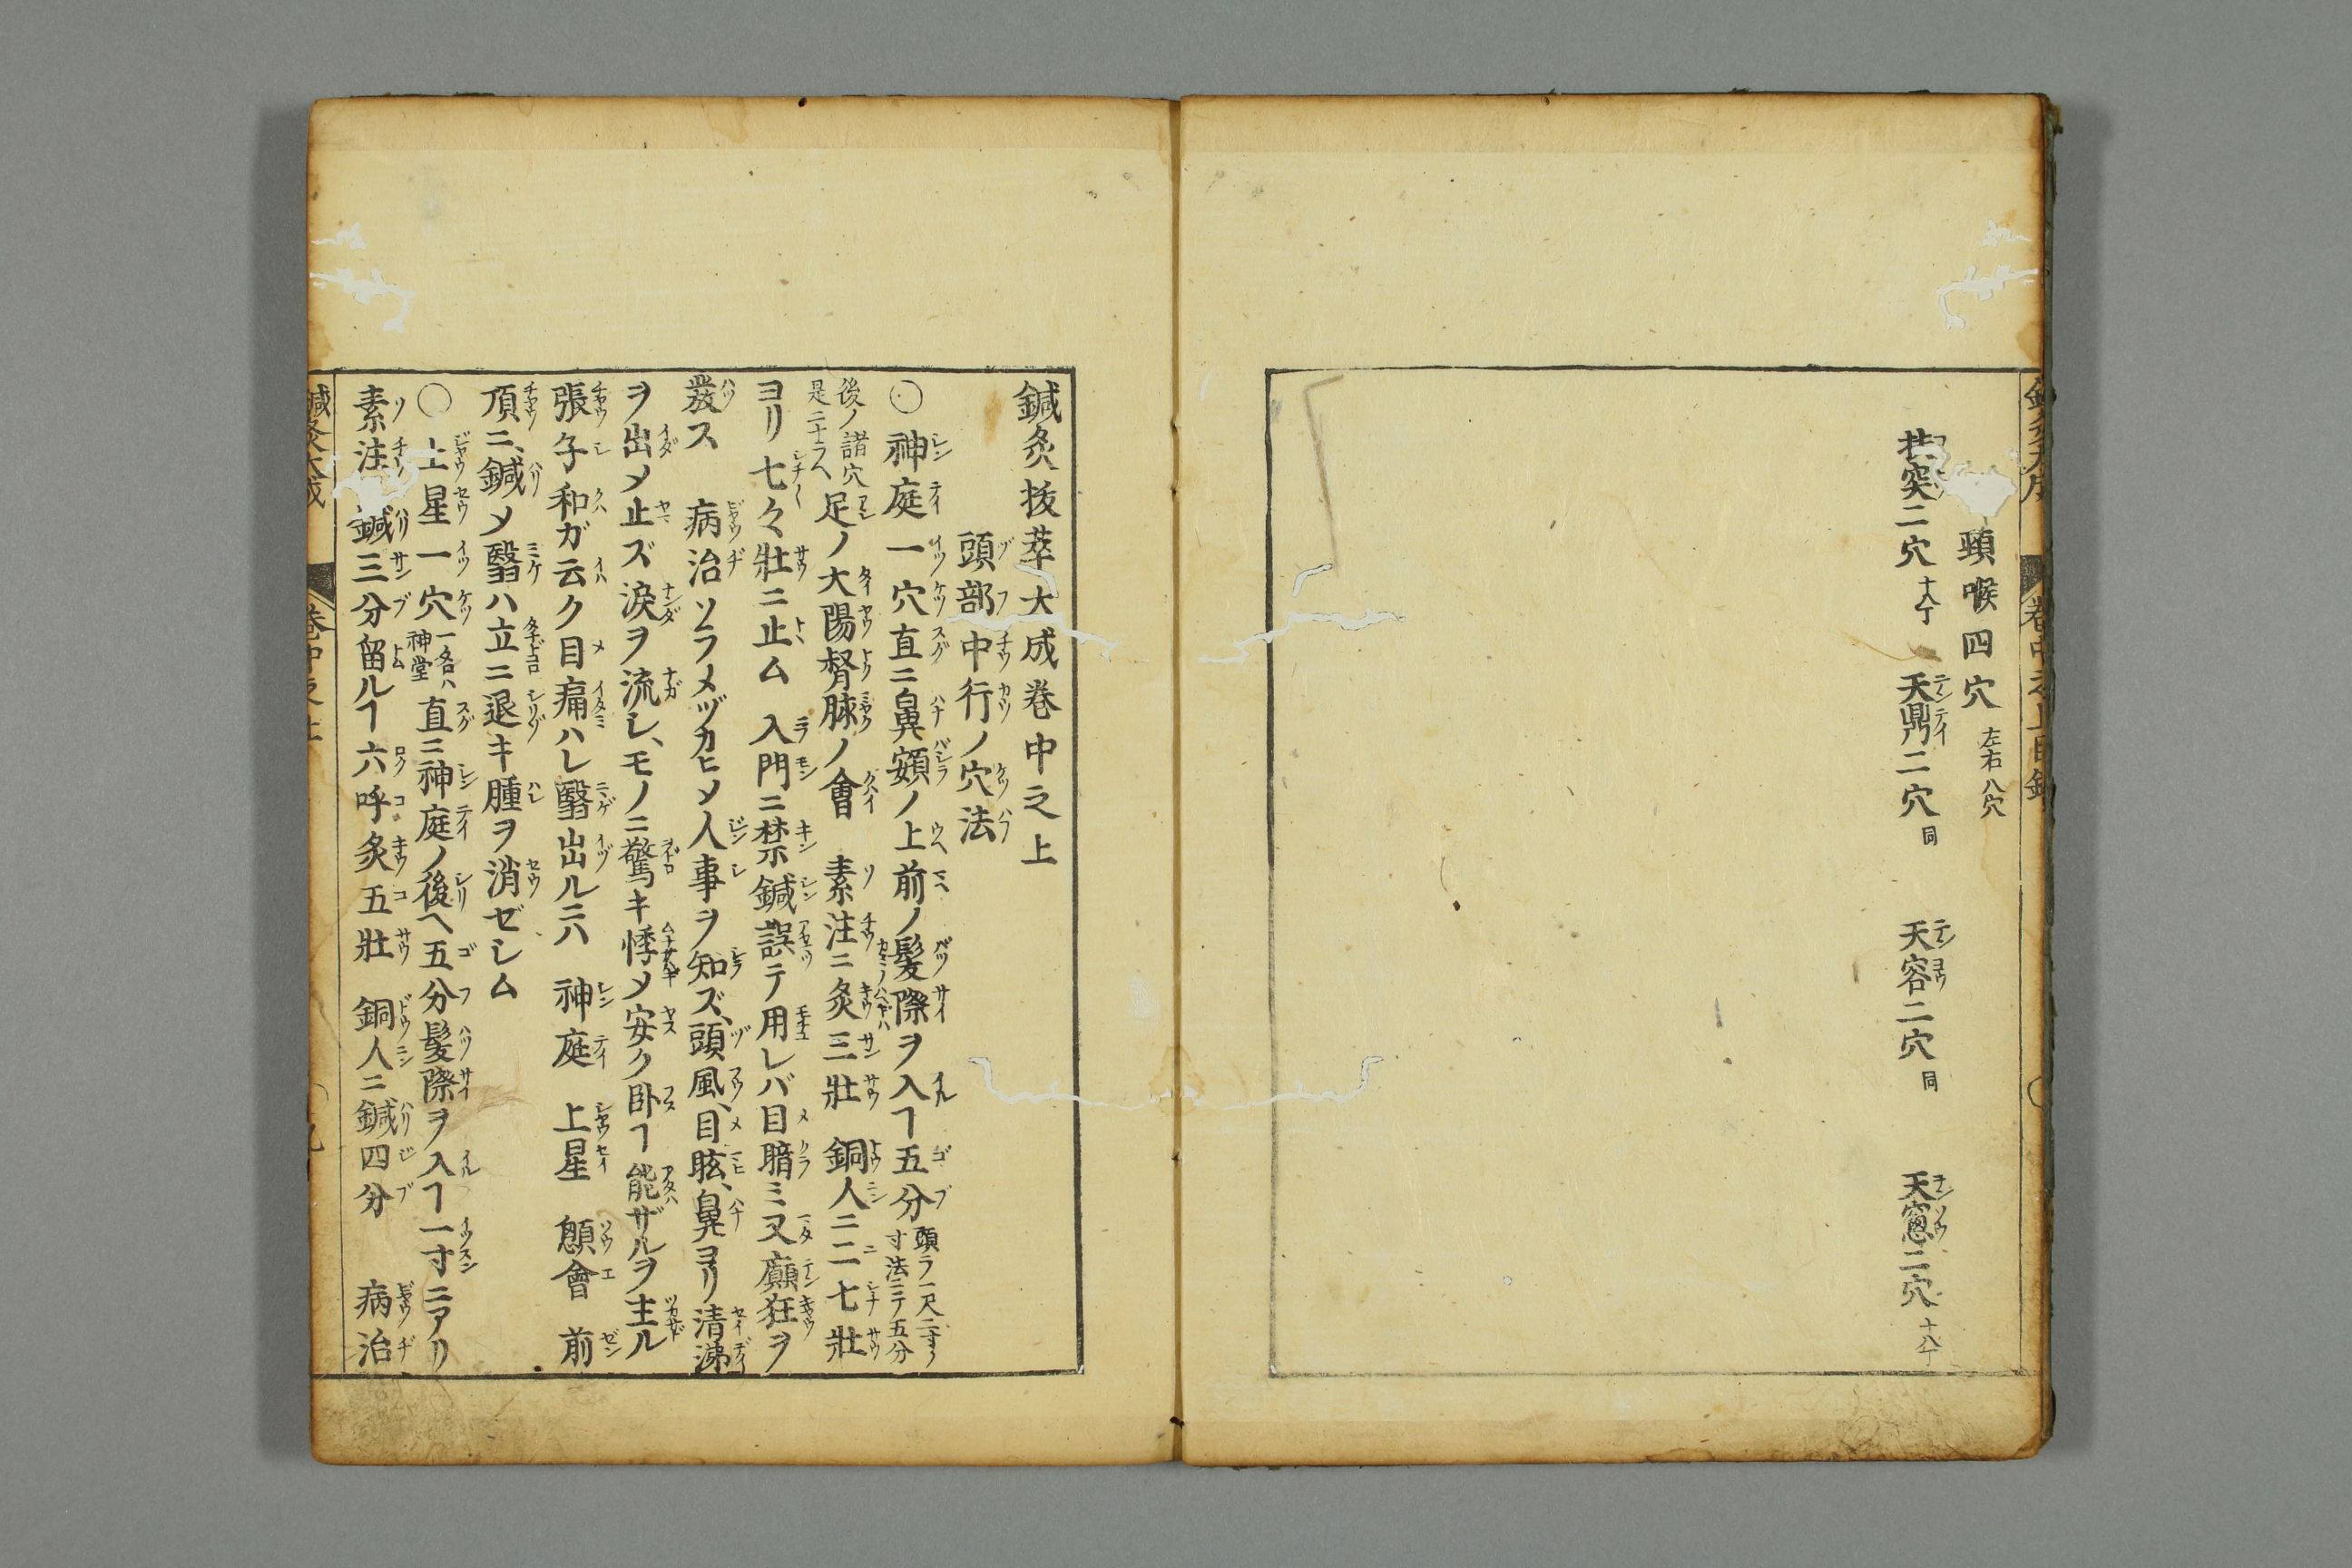 頸喉四穴 左右八穴
扶突二穴 十八丁 天鼎二穴 同 天容二穴 同 天窻二穴 十八丁
鍼灸抜萃大成巻中之上
頭部中行ノ穴法
○神庭一穴直ニ鼻頞ノ上前ノ髪際ヲ入ヿ五分 頭ラ一尺二寸ノ寸法ニテ五分
後ノ諸穴是ニナラヘ 足ノ大陽督脉ノ會 素注ニ灸三壯 銅人ニ二七壯
ヨリ七々壯ニ止ム 入門ニ禁鍼誤テ用レバ目暗ミ又癲狂ヲ
發ス 病治ソラメヅカヒメ人事ヲ知ズ、頭風、目眩、鼻ヨリ清涕
ヲ出メ止ズ涙ヲ流レ、モノニ驚キ悸メ安ク卧ヿ能ザルヲ主ル
張子和ガ云ク目痛ハレ翳出ルニハ 神庭 上星 顖會 前
頂ニ、鍼メ翳ハ立ニ退キ腫ヲ消ゼレム
○上星一穴 一名ハ神堂 直ニ神庭ノ後ヘ五分髪際ヲ入ヿ一寸ニアリ
素注 鍼三分留ルヿ六呼灸五壯 銅人ニ鍼四分 病治